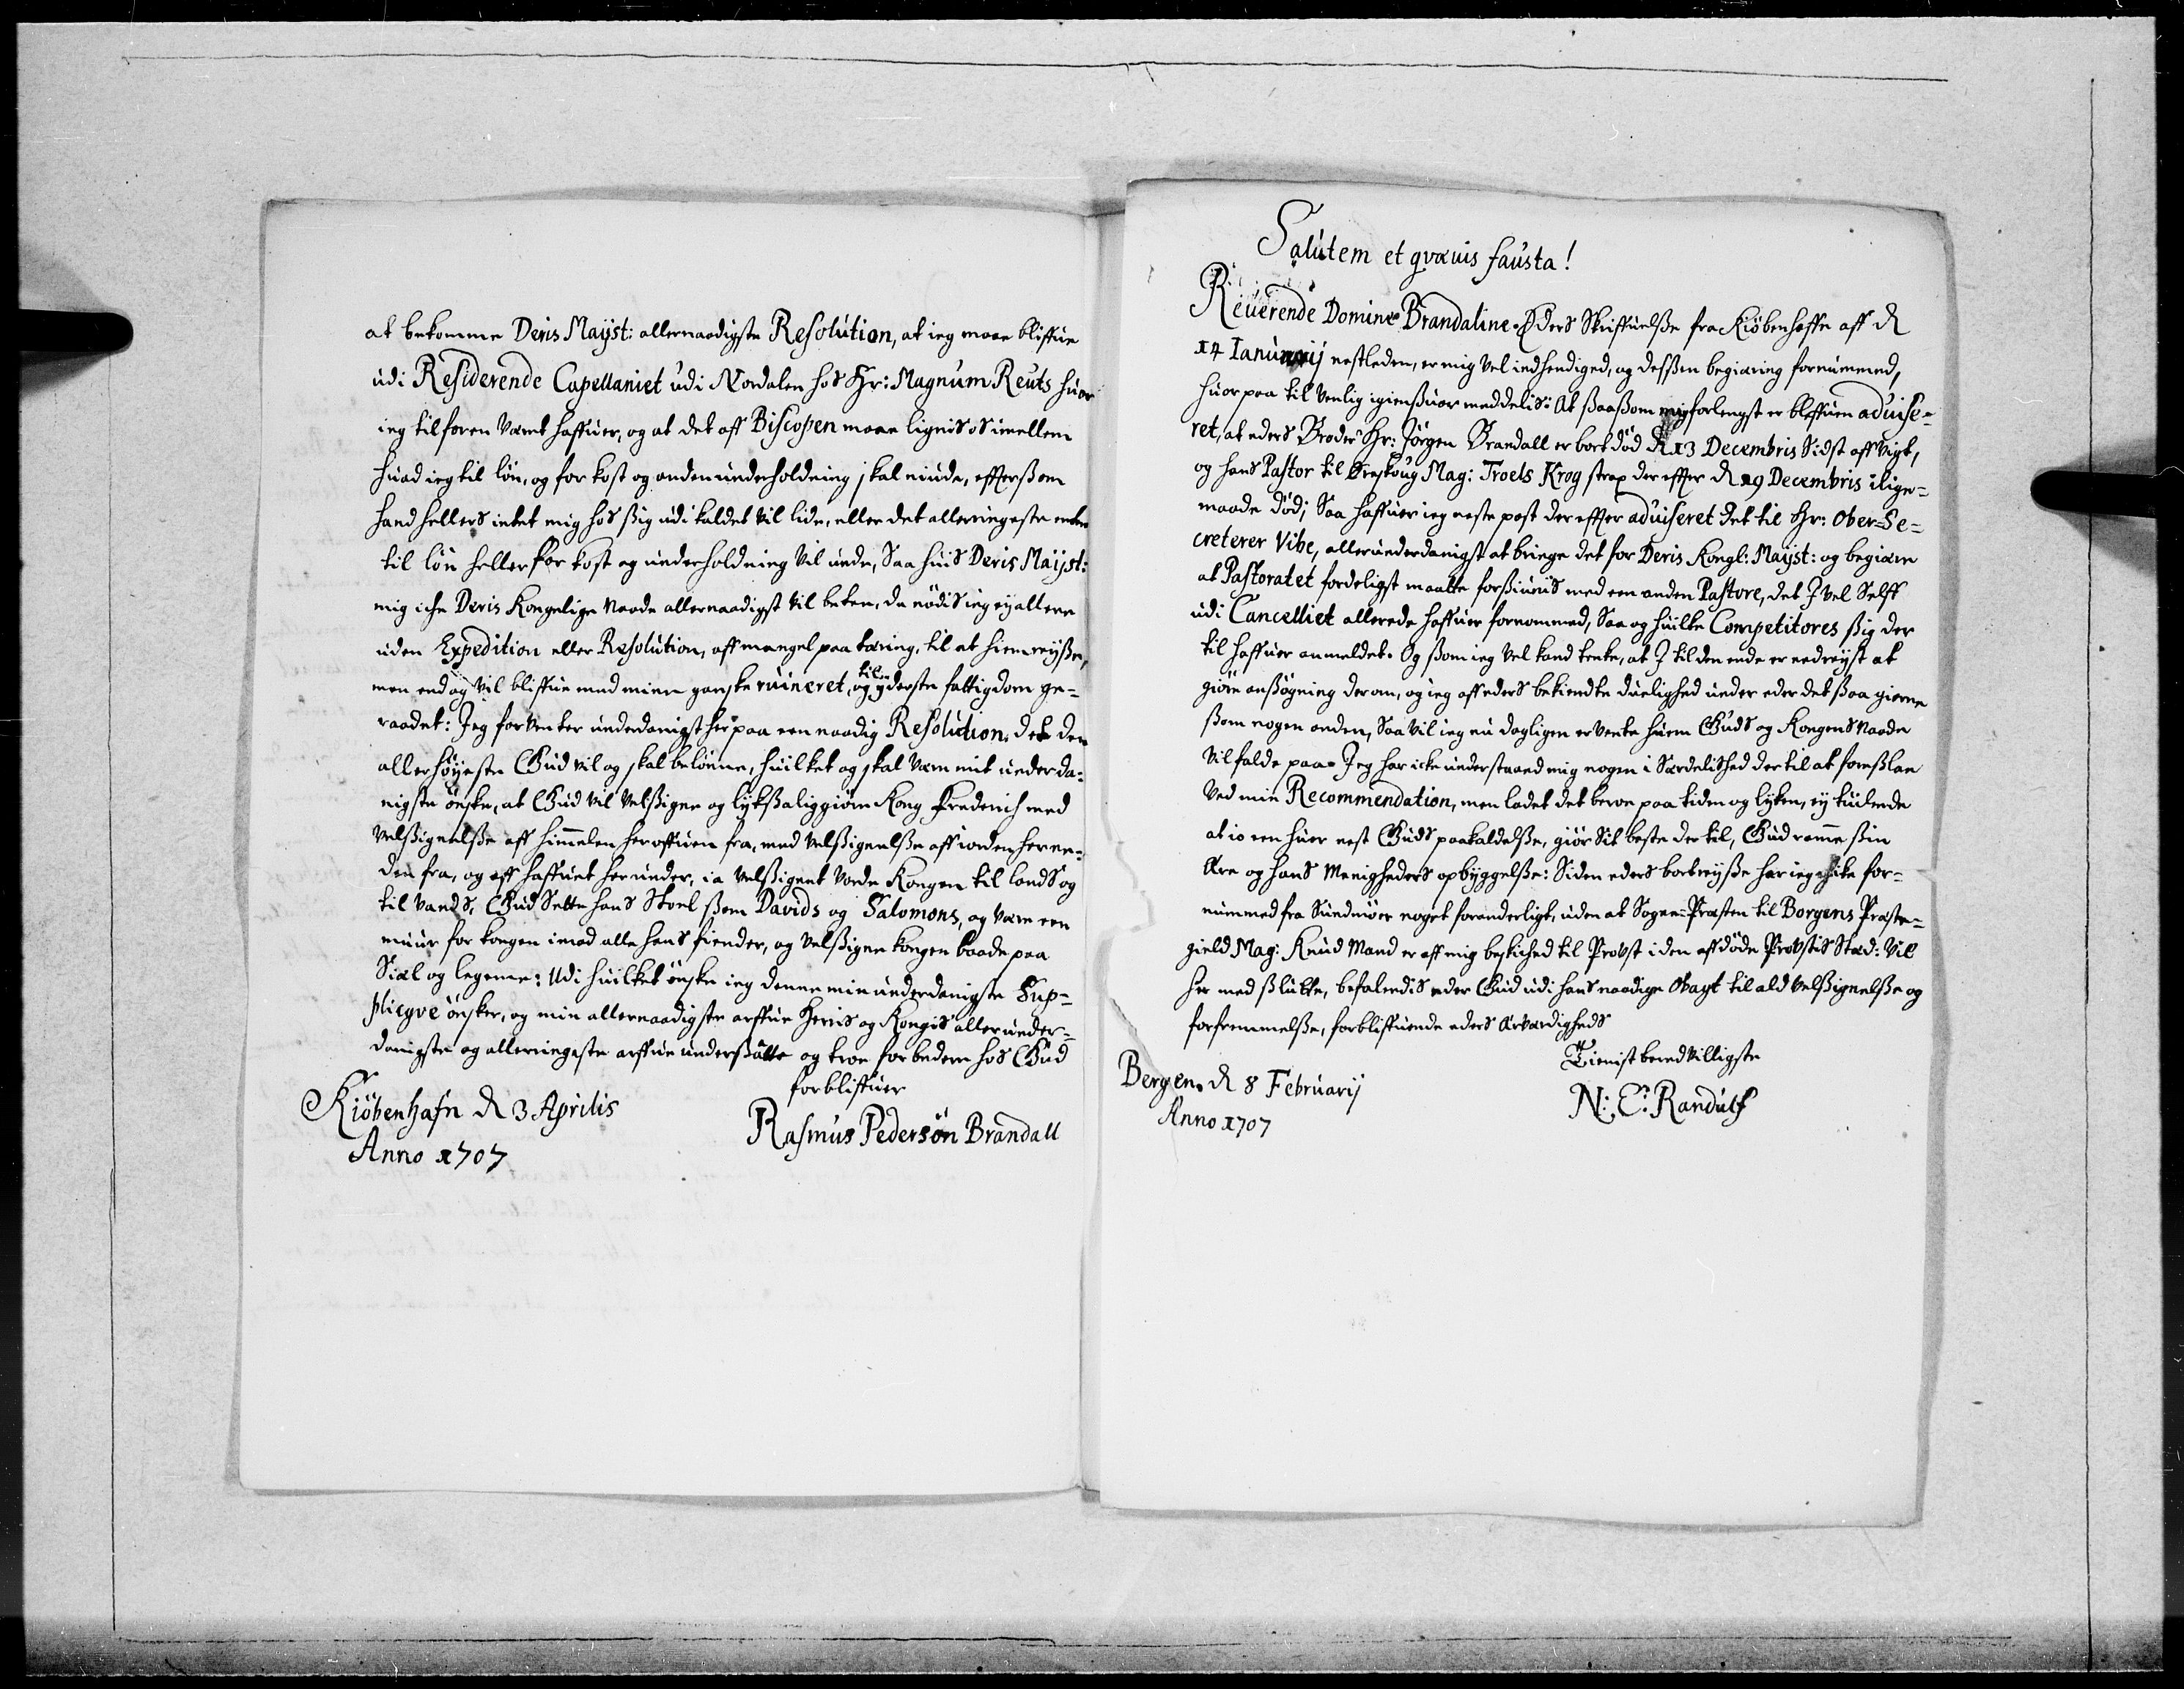 at bekomme Deris Mayst: allernaadigste Resolution, at ieg maae bliffue
udi Residerende Capellaniet udi Nordalen hos Hr: Magnum Reuts huor
ieg tilforen værit haffuer, og at det aff Biscopen maae lignis os imellem
huad ieg til løn, og for kost og anden underholdning skal niude, effterssom
hand hellers intet mig hos ssig udi kaldet vil lide, eller det allerringeste enten
til løn heller for kost og underholdning vil unde, Saa huis Deris Mayst:
mig iche Deris Kongelige Naade allernaadigst vil betee, da nödis ieg ey allene
uden Expedition eller Resolution, aff mangel paa tæring, til at hiemreysse,
men end og vil bliffue med mine gandske ruineret, og til yderste fattigdom ge=
raadet: Jeg forventer underdanigst her paa een naadig Resolution. det den
allerhöyeste Gud vil og skal belønne, huilket og skal være mit underda=
nigste önske, at Gud vil velssigne og lykssaliggiöre Kong Friderich med
Velssignelsse aff himmelen her offuen fra, med velssignelsse aff iorden her ne=
den fra, og aff haffuet herunder, ia velssignet vorde Kongen til lands og
til vands, Gud sette hans Stoel ssom Davids og Salomons, og være een
muur for kongen imod alle hans fiender, og velssigne kongen baade paa
Siæl og legeme: Udi huilket önske ieg denne min underdanigste Sup=
plicqve önsker, og min allernaadigste arffue Herris og Kongis allerunder=
danigste og allerringeste arffue underssåtte og troe forbedere hos Gud
forbliffuer
Kiöbenhafn d 3 Aprilis
Anno 1707
Rasmus Pedersön Brandall
Salutem et qvævis fausta!
Reverende Domine Brandaline. Eders Skriffuelsse fra Kiöbenhaffn aff d
14 Ianuarij nestleden, er mig vel indhendiged, og dessen begiæring fornummed,
huorpaa til venlig igiensuar meddelis: At ssaassom mig forlengst er bleffuen advise=
ret, at eders Broder Hr: Jörgen Brandall er bort död d 13 Decembris Sidst affvigt,
og hans Pastor til Ørskoug Mag: Troels Krog strax der effter d 19 Decembris ilige=
maade död; Saa haffuer ieg neste post der effter adviseret det til Hr: Ober=Se=
creterer Vibe, allerunderdanigst at bringe det for Deris Kongl: Mayst: og begiære
at Pastoratet fordeligst maatte forssiunis med een anden Pastore, det I vel Selff
udi Cancelliet allerede haffuer fornommed, Saa og huilke Competitores ssig der
til haffuer anmeldet. Og ssom ieg vel kand tenke, at I til den ende er nedreyst at
giöre anssögning derom, og ieg aff eders bekiendte duelighed under eder det ssaa gierne
ssom nogen anden, Saa vil ieg nu dagligen ervente huem Guds og Kongens Naade
vil falde paa. Jeg har icke understaaed mig nogen i Særdelished der til at foresslaae
ved min Recommendation, men ladet det beroe paa tiden og lyken, ey tuilende
at io een huer nest Guds paakaldelsse, giör Sit beste der til, Gud ramme ssin
Ære og hans Menigheders opbyggelsse: Siden eders bortreysse har ieg iche for=
nummed fra Sundmöer noget foranderligt, uden at Sogne=Præsten til Borgens Præste=
gield Mag: Knud Mand er aff mig beskiched til Provst i den affdöde Provstis Stæd: Vil
her med sslutte, befalendis eder Gud udi hans naadige Vagt til ald velssignelsse og
forfremmelsse, forbliffuende eders Ærværdigheds
Tienist beredvilligste
Bergen. d 8 Februarij
Anno 1707
N: E: Randulf